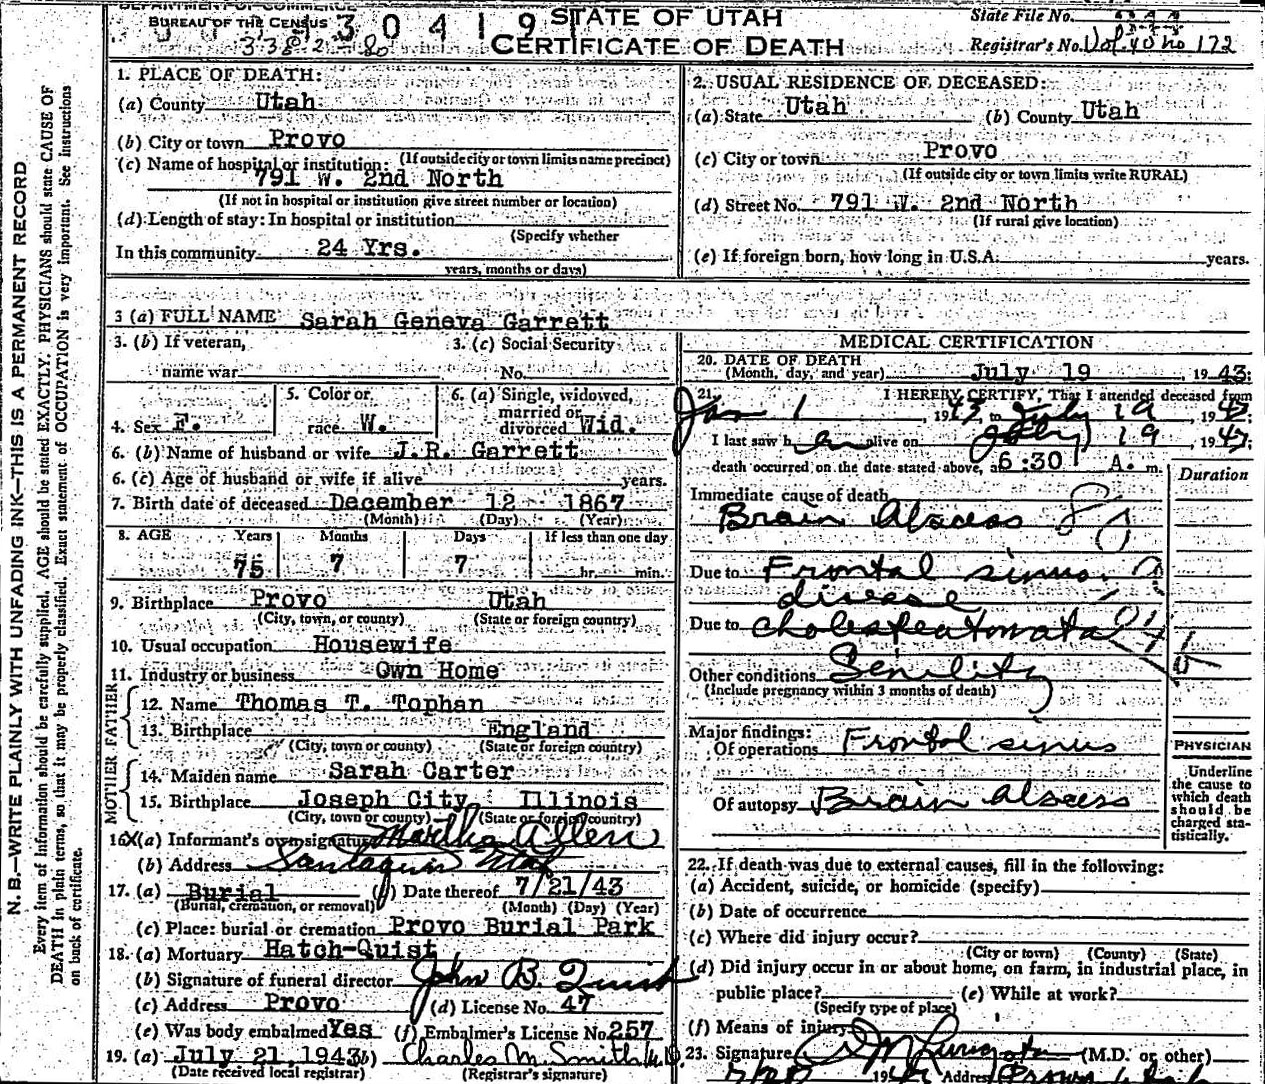 DEPARTMENT OF COMMERCE
BUREAU OF THE CENSUS
30419
STATE OF UTAH
CERTIFICATE OF DEATH
State File No.
Registrar's No. Vol. 40 no 172
N. B.—WRITE PLAINLY WITH UNFADING INK—THIS IS A PERMANENT RECORD
Every item of information should be carefully supplied. AGE should be stated EXACTLY. PHYSICIANS should state CAUSE OF
DEATH in plain terms, so that it may be properly classified. Exact statement of OCCUPATION is very important. See instructions
on back of certificate.
1. PLACE OF DEATH:
(a) County Utah
(b) City or town Provo
(If outside city or town limits name precinct)
(c) Name of hospital or institution:
791 W. 2nd North
(If not in hospital or institution give street number or location)
(d) Length of stay: In hospital or institution
(Specify whether
In this community 24 Yrs.
years, months or days)
2. USUAL RESIDENCE OF DECEASED:
(a) State Utah (b) County Utah
(c) City or town Provo
(If outside city or town limits write RURAL)
(d) Street No. 791 W. 2nd North
(If rural give location)
(e) If foreign born, how long in U.S.A. years.
3 (a) FULL NAME Sarah Geneva Garrett
3. (b) If veteran, 3. (c) Social Security
name war No.
4. Sex F. 5. Color or race W. 6. (a) Single, widowed, married or divorced Wid.
6. (b) Name of husband or wife J.R. Garrett
6. (c) Age of husband or wife if alive years.
7. Birth date of deceased December 12 1867
(Month) (Day) (Year)
8. AGE Years Months Days If less than one day
75 7 7 hr. min.
9. Birthplace Provo Utah
(City, town, or county) (State or foreign country)
10. Usual occupation Housewife
11. Industry or business Own Home
FATHER
12. Name Thomas T. Tophan
13. Birthplace England
(City, town or county) (State or foreign country)
MOTHER
14. Maiden name Sarah Carter
15. Birthplace Joseph City Illinois
(City, town or county) (State or foreign country)
16 (a) Informant's own signature Martha Allen
(b) Address Santaquin Utah
17. (a) Burial (b) Date thereof 7/21/43
(Burial, cremation, or removal) (Month) (Day) (Year)
(c) Place: burial or cremation Provo Burial Park
18. (a) Mortuary Hatch-Quist
(b) Signature of funeral director John B. Quist
(c) Address Provo (d) License No. 47
(e) Was body embalmed Yes (f) Embalmer's License No. 257
19. (a) July 21, 1943 (b) Charles M. Smith M.D.
(Date received local registrar) (Registrar's signature)
MEDICAL CERTIFICATION
20. DATE OF DEATH
(Month, day, and year) July 19 1943:
21. I HEREBY CERTIFY, That I attended deceased from
Jan 1 1943 to July 19, 1943
I last saw her alive on July 19, 1943;
death occurred on the date stated above, at 6:30 A. m.
Duration
Immediate cause of death
Brain Abscess
Due to Frontal sinus
disease
Due to cholesteatomata
Other conditions Senility
(Include pregnancy within 3 months of death)
Major findings:
Of operations Frontal sinus
Of autopsy Brain abscess
PHYSICIAN
Underline
the cause to
which death
should be
charged sta-
tistically.
22. If death was due to external causes, fill in the following:
(a) Accident, suicide, or homicide (specify)
(b) Date of occurrence
(c) Where did injury occur?
(City or town) (County) (State)
(d) Did injury occur in or about home, on farm, in industrial place, in
public place? (e) While at work?
(Specify type of place)
(f) Means of injury
23. Signature (M.D. or other)
19 Address Provo Utah